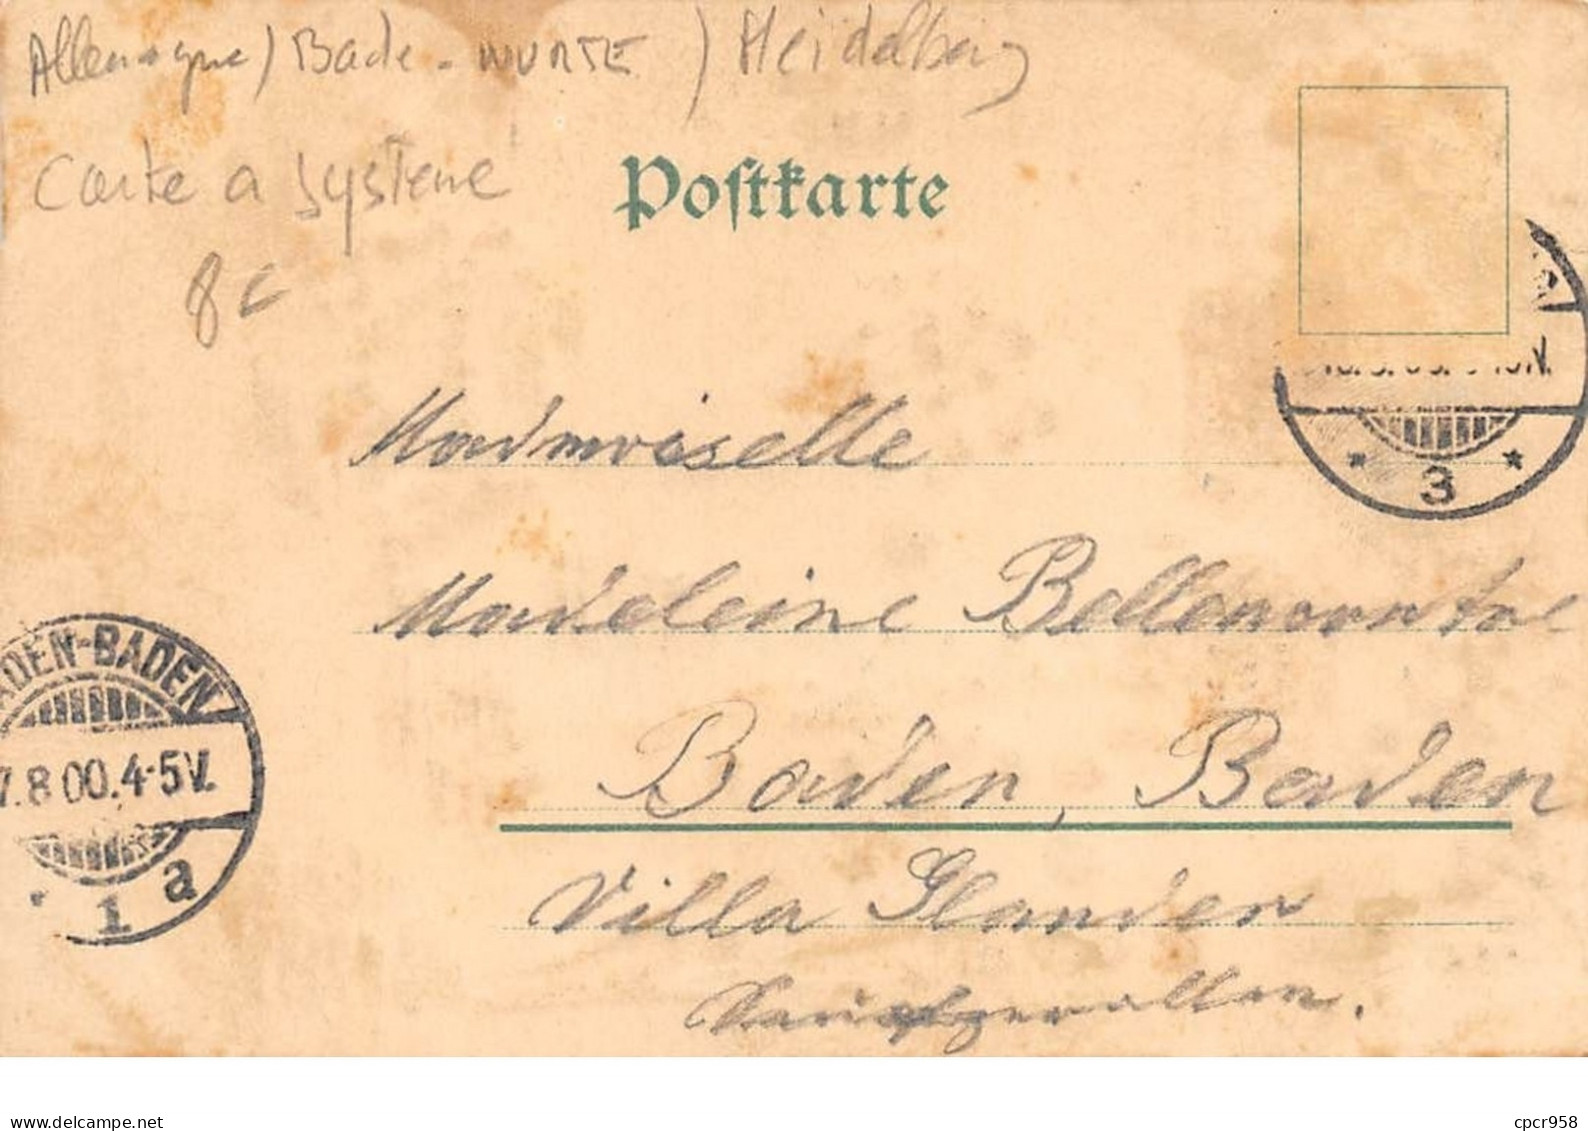 Allemagne / Bade-WURTE / Heidelberg
Carte a système
8€
Postkarte
3
Mademoiselle
Madeleine
Baden, Baden
Villa
ADEN-BADEN
7.8.00.4-5V.
1 a
www.delcampe.net
cpcr958